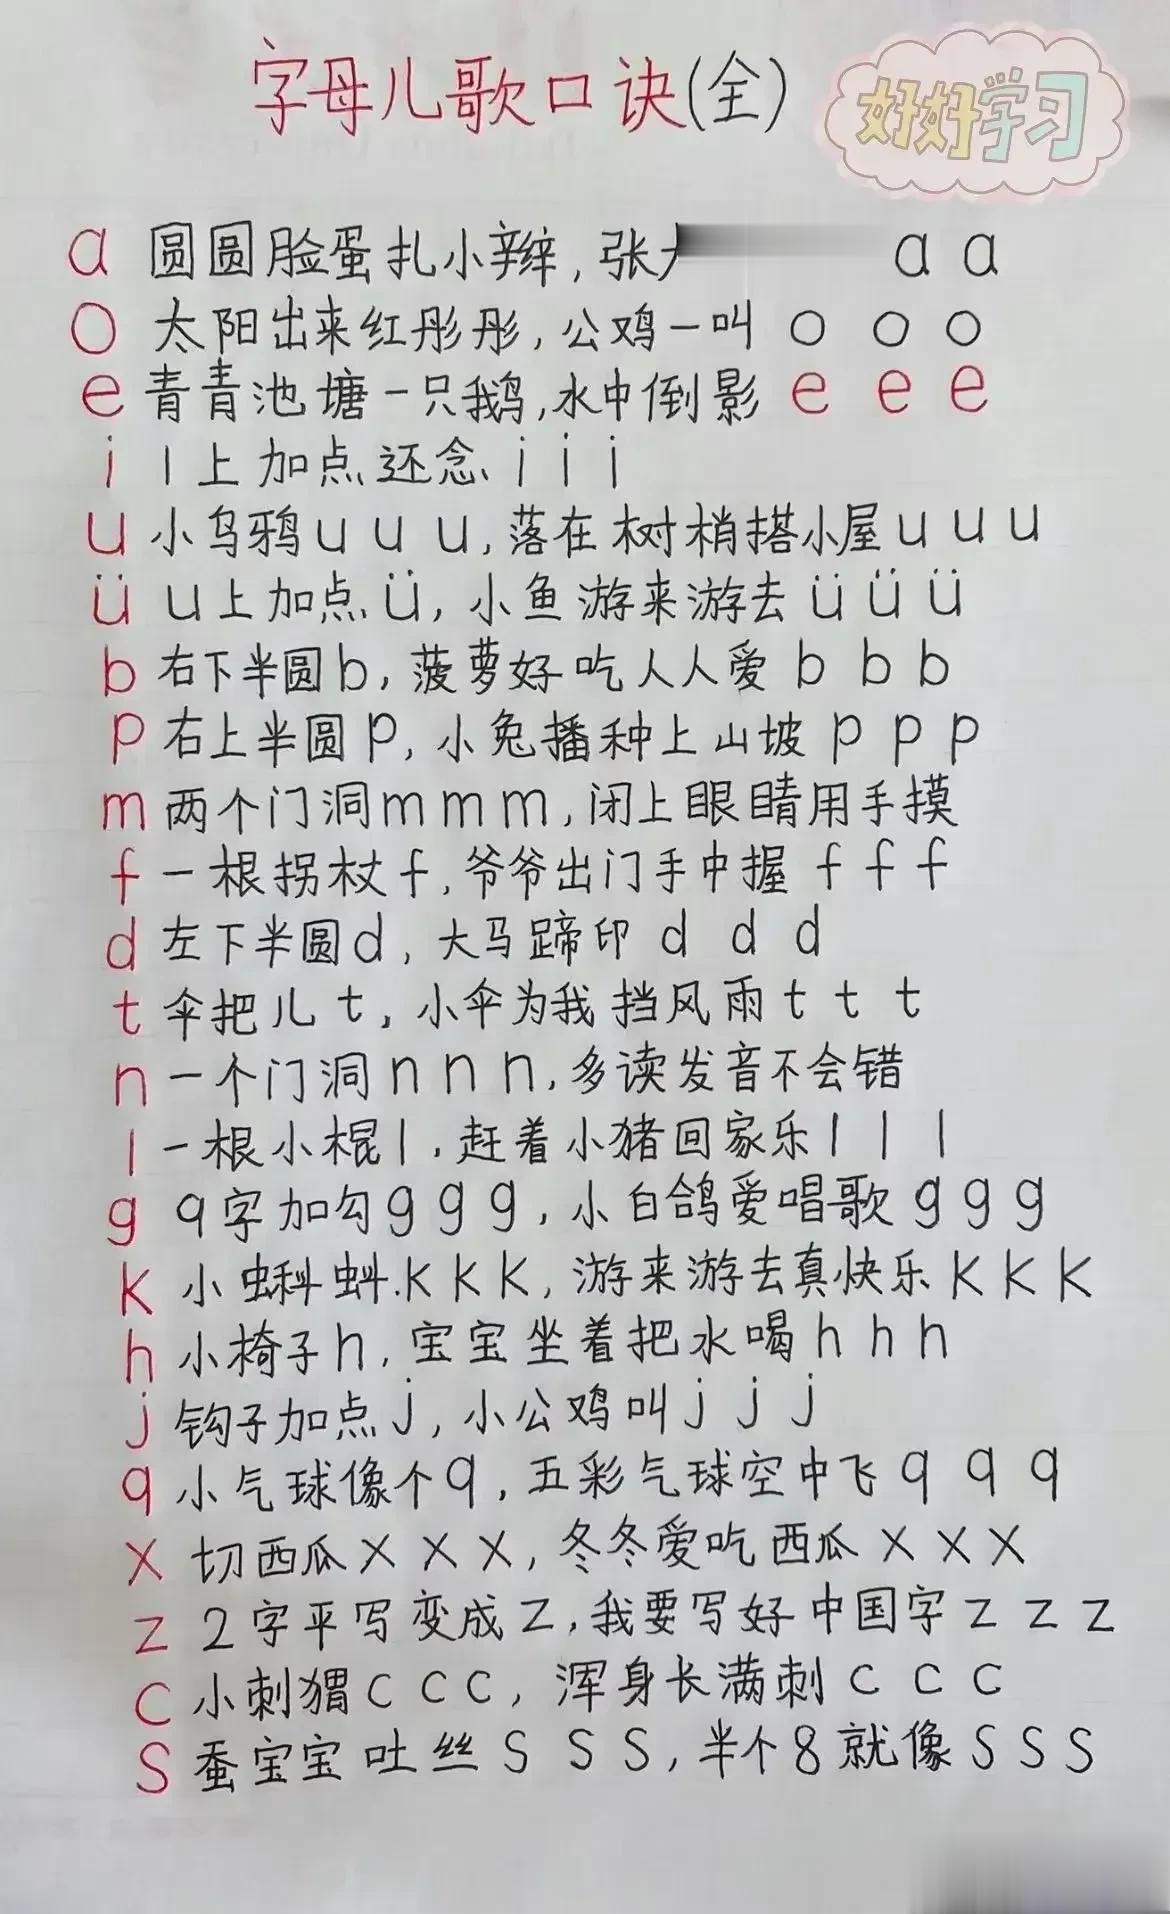 字母儿歌口诀(全)
好好学习
a 圆圆脸蛋扎小辫,张 a a
o 太阳出来红彤彤,公鸡一叫 o o o
e 青青池塘一只鹅,水中倒影 e e e
i 1上加点还念 i i i
u 小乌鸦 u u u,落在树梢搭小屋 u u u
ü u上加点 ü,小鱼游来游去 ü ü ü
b 右下半圆 b,菠萝好吃人人爱 b b b
p 右上半圆 p,小兔播种上山坡 p p p
m 两个门洞 m m m,闭上眼睛用手摸
f 一根拐杖 f,爷爷出门手中握 f f f
d 左下半圆 d,大马蹄印 d d d
t 伞把儿 t,小伞为我挡风雨 t t t
n 一个门洞 n n n,多读发音不会错
l 一根小棍 l,赶着小猪回家乐 l l l
g 9字加勾 g g g,小白鸽爱唱歌 g g g
k 小蝌蚪.k k k,游来游去真快乐 k k k
h 小椅子 h,宝宝坐着把水喝 h h h
j 钩子加点 j,小公鸡叫 j j j
q 小气球像个 q,五彩气球空中飞 q q q
x 切西瓜 x x x,冬冬爱吃西瓜 x x x
z 2字平写变成 z,我要写好中国字 z z z
c 小刺猬 c c c,浑身长满刺 c c c
s 蚕宝宝吐丝 s s s,半个8就像 s s s